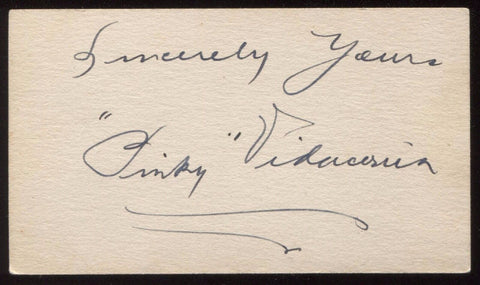 Sincerely Yours
"Pinky" Vidacovich